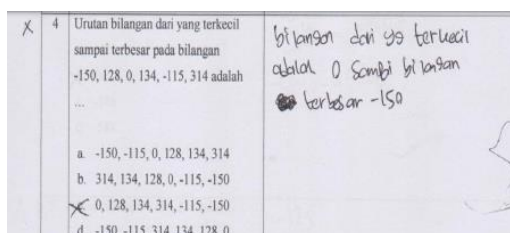 X
4
Urutan bilangan dari yang terkecil
sampai terbesar pada bilangan
-150, 128, 0, 134, -115, 314 adalah
...
a. -150, -115, 0, 128, 134, 314
b. 314, 134, 128, 0, -115, -150
0, 128, 134, 314, -115, -150
d. -150, -115, 314, 134, 128, 0
bilangan dari yg terkecil
adalah 0 sambi bilangan
terbesar -150